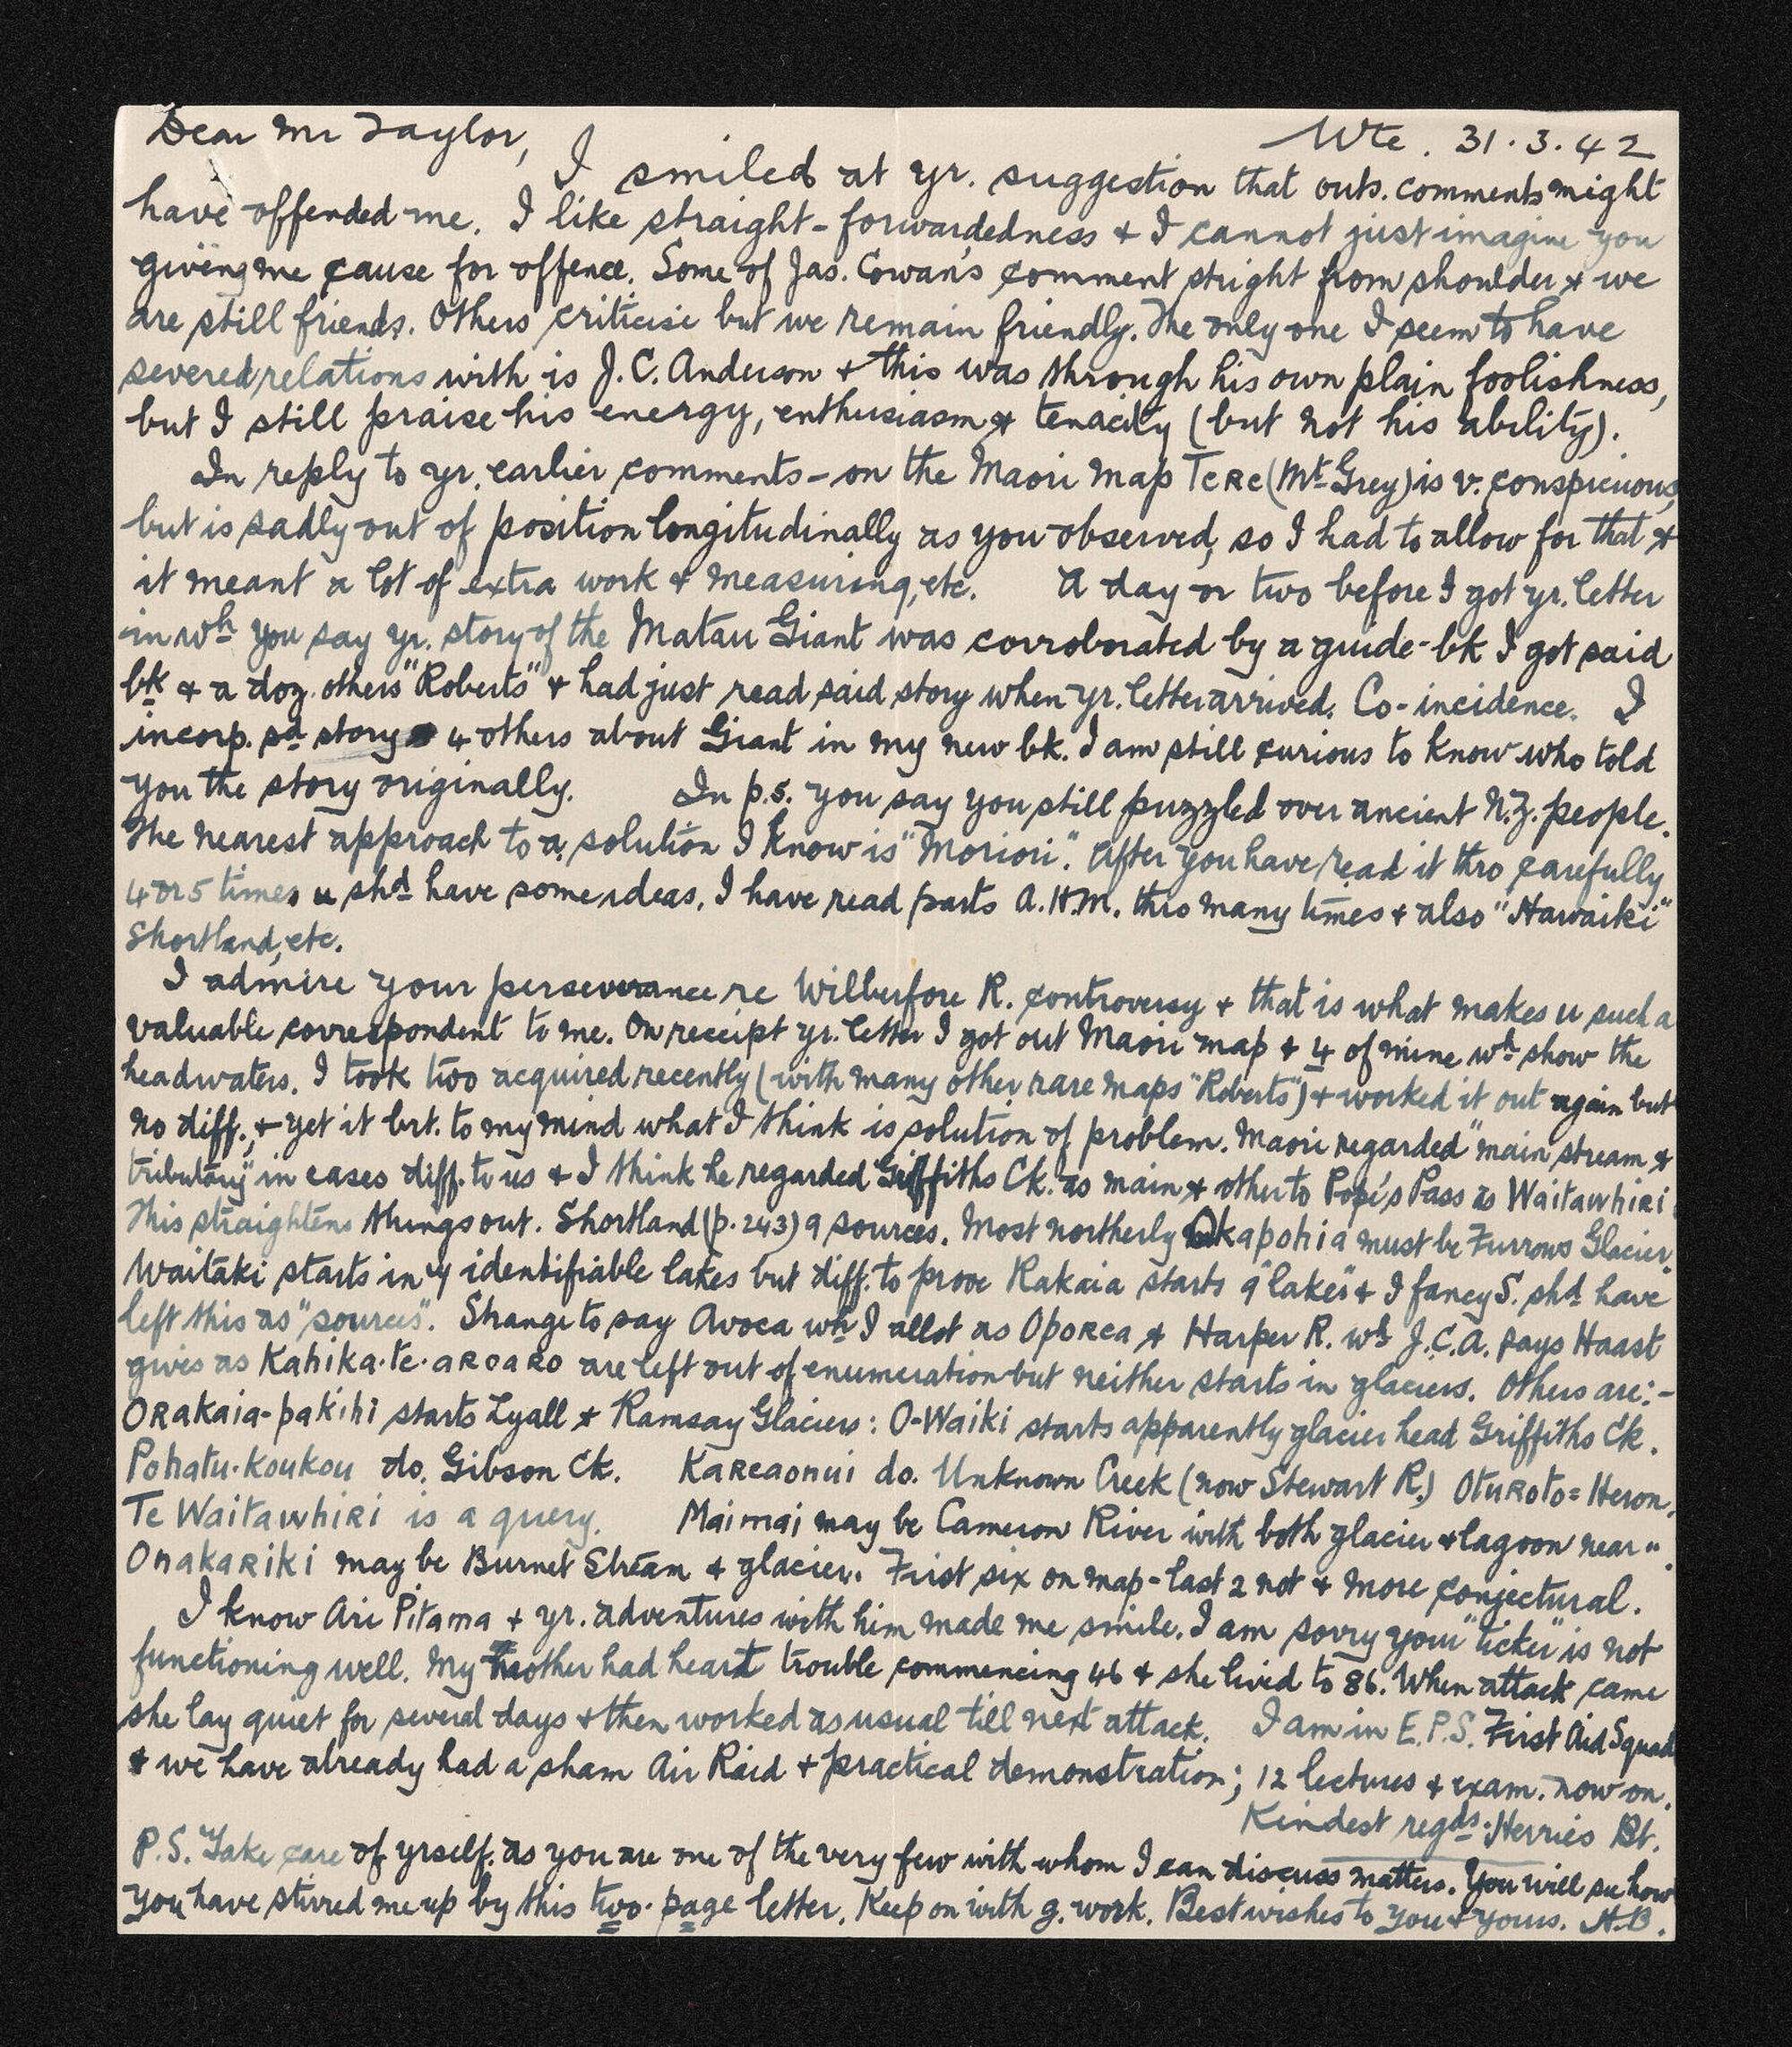 Dear Mr Taylor, Wte. 31.3.42
I smiled at yr. suggestion that outs. comments might
have offended me. I like straight-forwardedness & I cannot just imagine you
giving me cause for offence. Some of Jas. Cowan's comment stright from shoulder & we
are still friends. Others criticise but we remain friendly. The only one I seem to have
severed relations with is J.C. Anderson & this was through his own plain foolishness,
but I still praise his energy, enthusiasm & tenacity (but not his ability).
In reply to yr. earlier comments - on the Maori map Tere (Mt Grey) is v. conspicuous,
but is sadly out of position longitudinally as you observed, so I had to allow for that &
it meant a lot of extra work & measuring, etc. A day or two before I got yr. letter
in wh you say yr. story of the Matau Giant was corroborated by a guide-bk I got said
bk & a doz. others "Roberts" & had just read said story when yr. letter arrived. Co-incidence. I
incorp. sd story & 4 others about Giant in my new bk. I am still curious to know who told
you the story originally. In p.s. you say you still puzzled over ancient N.Z. people.
The nearest approach to a solution I know is "Moriori". After you have read it thro carefully
4 or 5 times u shd have some ideas. I have read parts A.H.M. thro many times & also "Hawaiki"
Shortland, etc.
I admire your perseverance re Wilberfore R. controversy & that is what makes u such a
valuable correspondent to me. On receipt yr. letter I got out Maori map & 4 of mine wh show the
headwaters. I took two acquired recently (with many other rare maps "Roberts") & worked it out again but
no diff., & yet it brt. to my mind what I think is solution of problem. Maori regarded "main stream &
tributary" in cases diff. to us & I think he regarded Griffiths Ck. as main & other to Pope's Pass as Waitawhiri.
This straightens things out. Shortland (p. 243) 9 sources. Most northerly Okapohia must be Furrows Glacier.
Waitaki starts in 4 identifiable lakes but diff. to prove Rakaia starts 9 "lakes" & I fancy S. shd have
left this as "sources". Strange to say Avoca wh I allot as Oporea & Harper R. wh J.C.A. says Haast
gives as Kahika-te-aroaro are left out of enumeration but neither starts in glaciers. Others are:-
Orakaia-pakihi starts Lyall & Ramsay Glaciers: O-Waiki starts apparently glacier head Griffiths Ck.
Pohatu-koukou do. Gibson Ck. Kareaonui do. Unknown Creek (now Stewart R.) Oturoto = Heron.
Te Waitawhiri is a query. Maimai may be Cameron River with both glacier & lagoon near ".
Onakariki may be Burnet Stream & glacier. First six on map - last 2 not & more conjectural.
I know Ari Pitama & yr. adventures with him made me smile. I am sorry your "ticker" is not
functioning well. My mother had heart trouble commencing 46 & she lived to 86. When attack came
she lay quiet for several days & then worked as usual till next attack. I am in E.P.S. First Aid Squad
& we have already had a sham Air Raid & practical demonstration; 12 lectures & exam. now on.
Kindest regds. Herries Bt.
P.S. Take care of yrself. as you are one of the very few with whom I can discuss matters. You will see how
you have stirred me up by this two-page letter. Keep on with g. work. Best wishes to you & yours. H.B.